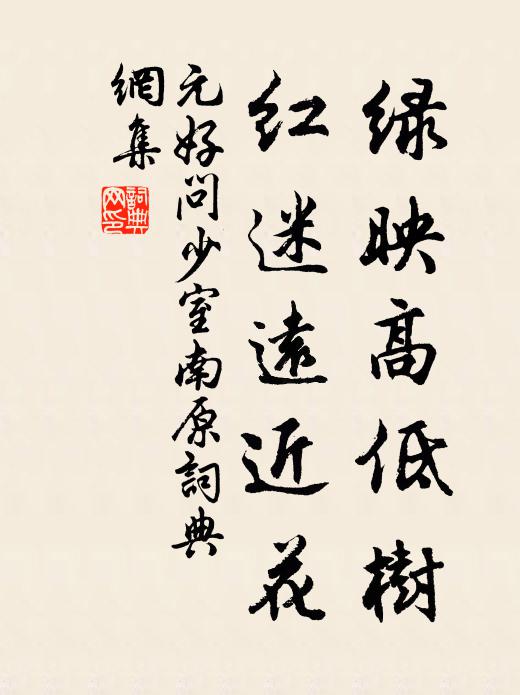 绿映高低樹
红迷遠近花
元好问少室南原詞典
網集
詞典網印